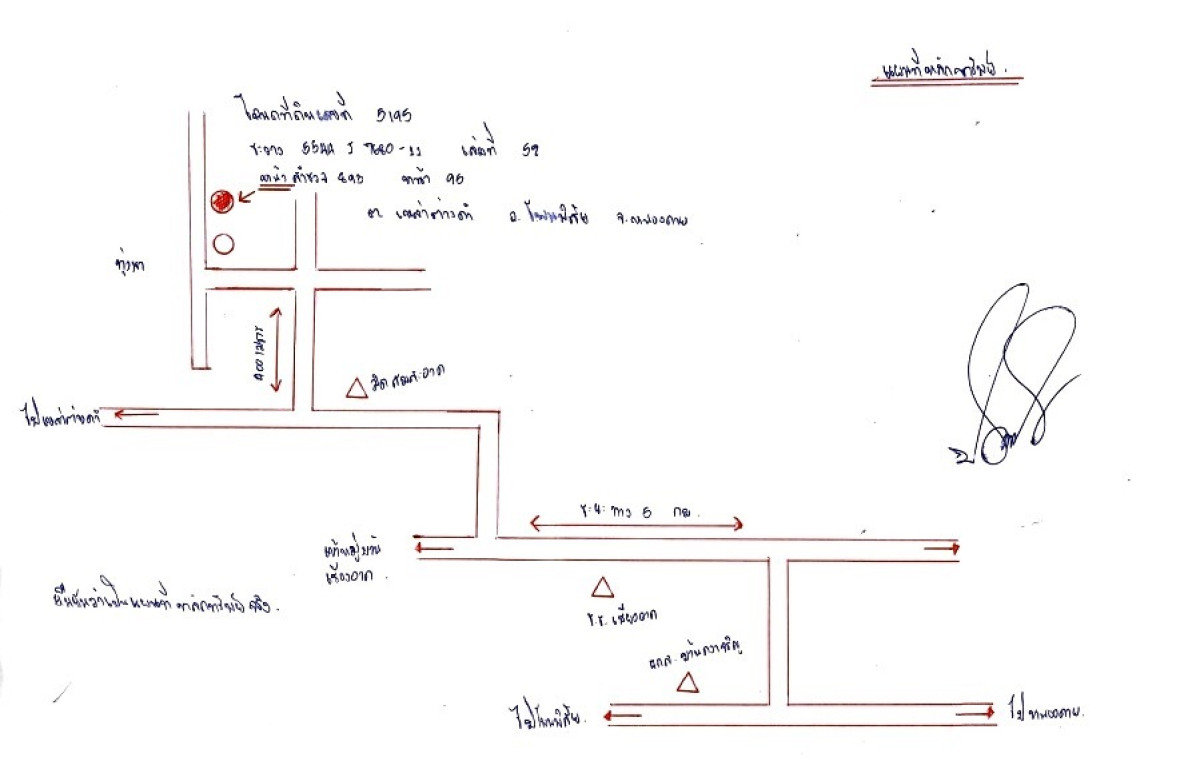 แผนที่หลักทรัพย์.
โฉนดที่ดินเลขที่ 5195
ระวาง 5544 I 7680-11 เล่มที่ 52
หน้าสำรวจ 895 หน้า 95
ต. เหล่าต่างคำ อ. โพนพิสัย จ.หนองคาย
ทุ่งนา
400 เมตร
วัดศรีสะอาด
ไปเหล่าต่างคำ
ระยะทาง 5 กม.
เข้าหมู่บ้าน
เซียงอาด.
ยืนยันว่าเป็นแผนที่หลักทรัพย์จริง.
ร.ร. เซียงอาด
ไปโพนพิสัย.
ไปหนองคาย.